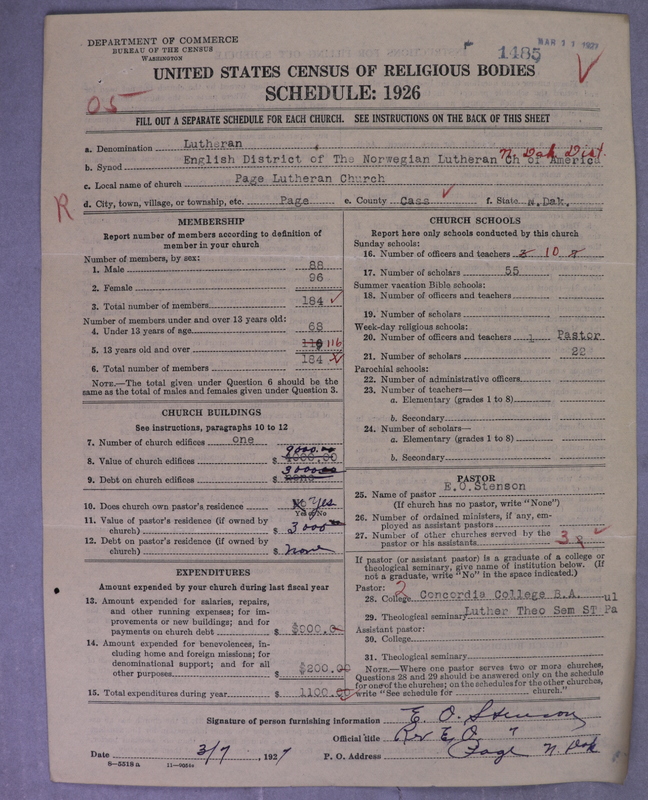 DEPARTMENT OF COMMERCE
BUREAU OF THE CENSUS
WASHINGTON
1485
MAR 11 1927
UNITED STATES CENSUS OF RELIGIOUS BODIES
SCHEDULE: 1926
05
FILL OUT A SEPARATE SCHEDULE FOR EACH CHURCH. SEE INSTRUCTIONS ON THE BACK OF THIS SHEET
a. Denomination Lutheran
N. Dak Dist.
b. Synod English District of The Norwegian Lutheran Ch of America
c. Local name of church Page Lutheran Church
R
d. City, town, village, or township, etc. Page e. County Cass f. State N.Dak.
MEMBERSHIP
Report number of members according to definition of
member in your church
Number of members, by sex:
1. Male 88
2. Female 96
3. Total number of members 184
Number of members under and over 13 years old:
4. Under 13 years of age 68
5. 13 years old and over 116
6. Total number of members 184
NOTE.—The total given under Question 6 should be the
same as the total of males and females given under Question 3.
CHURCH BUILDINGS
See instructions, paragraphs 10 to 12
7. Number of church edifices one
8. Value of church edifices $ 9000.00
9. Debt on church edifices $
10. Does church own pastor's residence No Yes
Yes or No
11. Value of pastor's residence (if owned by
church) $ 3000.00
12. Debt on pastor's residence (if owned by
church) $ none
EXPENDITURES
Amount expended by your church during last fiscal year
13. Amount expended for salaries, repairs,
and other running expenses; for im-
provements or new buildings; and for
payments on church debt $ $900.0
14. Amount expended for benevolences, in-
cluding home and foreign missions; for
denominational support; and for all
other purposes $ $200.00
15. Total expenditures during year $ 1100.00
CHURCH SCHOOLS
Report here only schools conducted by this church
Sunday schools:
16. Number of officers and teachers 10
17. Number of scholars 55
Summer vacation Bible schools:
18. Number of officers and teachers
19. Number of scholars
Week-day religious schools:
20. Number of officers and teachers 1 Pastor
21. Number of scholars 22
Parochial schools:
22. Number of administrative officers
23. Number of teachers—
a. Elementary (grades 1 to 8)
b. Secondary
24. Number of scholars—
a. Elementary (grades 1 to 8)
b. Secondary
PASTOR
25. Name of pastor E.O.Stenson
(If church has no pastor, write "None")
26. Number of ordained ministers, if any, em-
ployed as assistant pastors
27. Number of other churches served by the
pastor or his assistants 3
If pastor (or assistant pastor) is a graduate of a college or
theological seminary, give name of institution below. (If
not a graduate, write "No" in the space indicated.)
Pastor: 2
28. College Concordia College B.A.
ul
29. Theological seminary Luther Theo Sem ST Pa
Assistant pastor:
30. College
31. Theological seminary
NOTE.—Where one pastor serves two or more churches,
Questions 28 and 29 should be answered only on the schedule
for one of the churches; on the schedules for the other churches,
write "See schedule for church."
Signature of person furnishing information E. O. Stenson
Official title Rev E.O. "
Date 3/7, 1927 P. O. Address Page N Dak
8-5318a 11-9051a